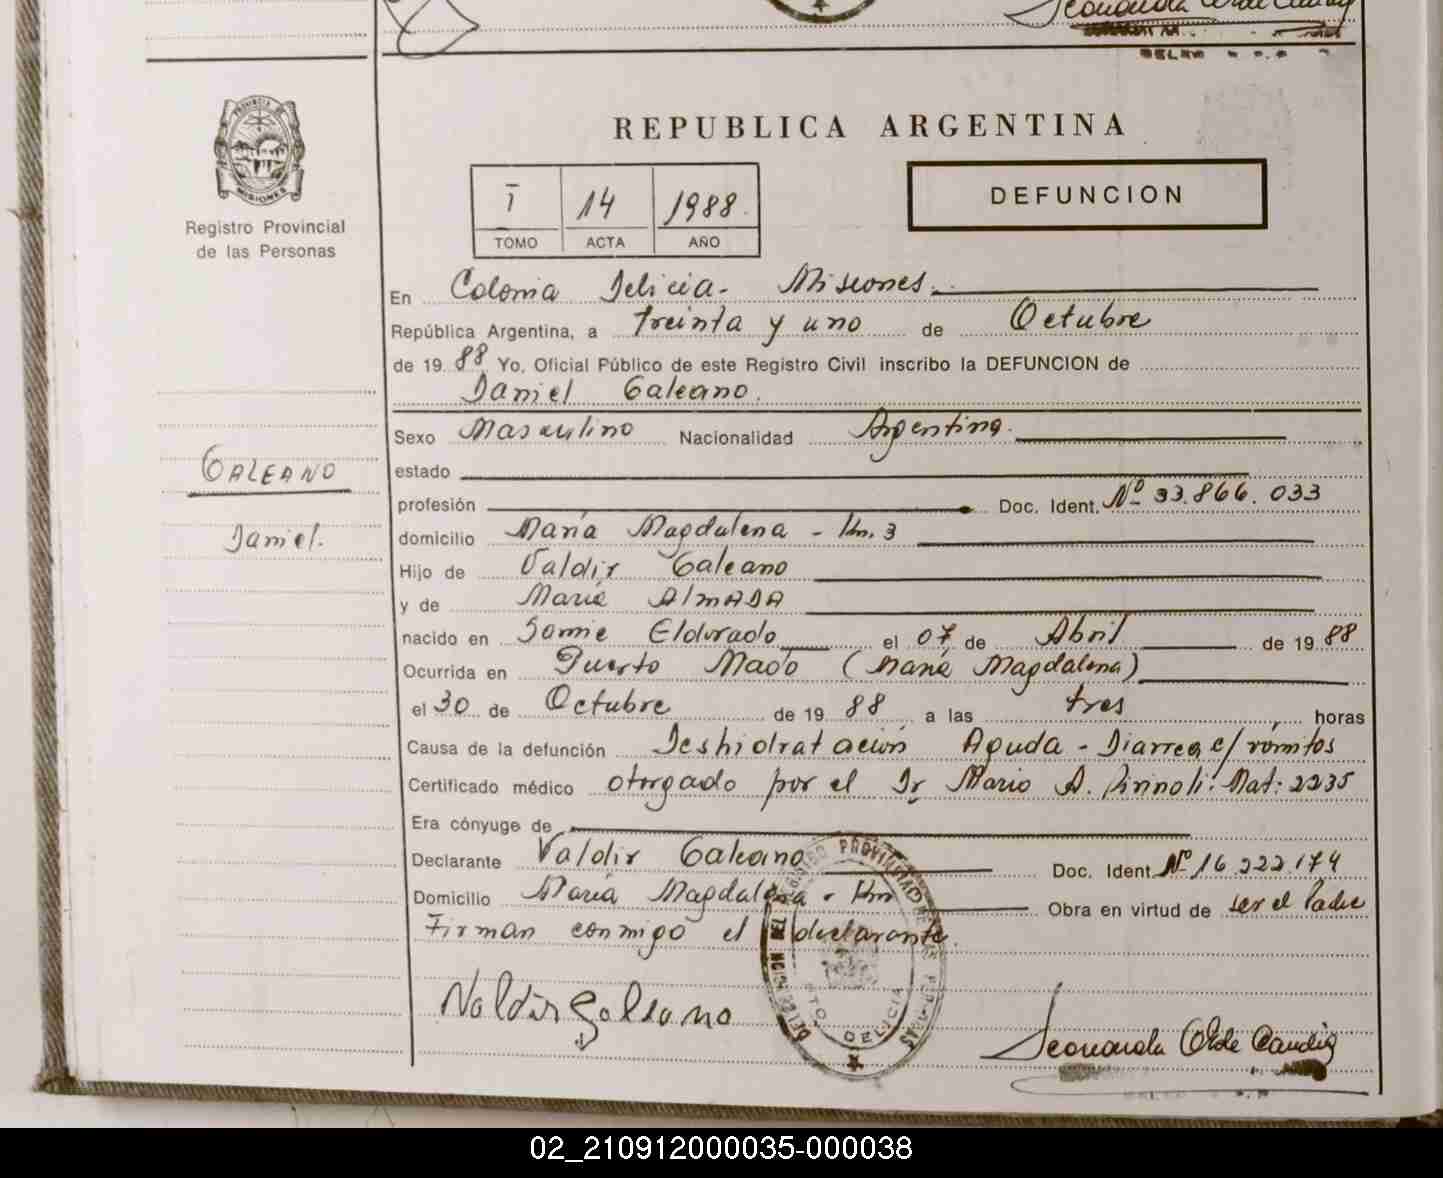 REPUBLICA ARGENTINA
PROVINCIA DE
MISIONES
Registro Provincial
de las Personas
Ī 14 1988.
TOMO ACTA AÑO
DEFUNCION
En Colonia Delicia - Misiones.
República Argentina, a treinta y uno de Octubre
de 19 88 Yo, Oficial Público de este Registro Civil inscribo la DEFUNCION de
Daniel Galeano.
Sexo Masculino Nacionalidad Argentina.
GALEANO
estado
profesión Doc. Ident. Nº 33.866.033
Daniel.
domicilio María Magdalena - Km. 3
Hijo de Valdir Galeano
y de María AlmADA
nacido en Eldorado el 07 de Abril de 19 88
Ocurrida en Puerto Mado (María Magdalena)
el 30 de Octubre de 19 88 a las tres horas
Causa de la defunción Deshidratación Aguda - Diarrea c/ vómitos
Certificado médico otorgado por el Dr Mario A. Mat: 2235
Era cónyuge de
Declarante Valdir Galeano Doc. Ident. Nº 16.222.174
Domicilio María Magdalena - Km Obra en virtud de ser el Padre
Firman conmigo el declarante.
Valdir Galeano
DTO. DELICIA
02_210912000035-000038